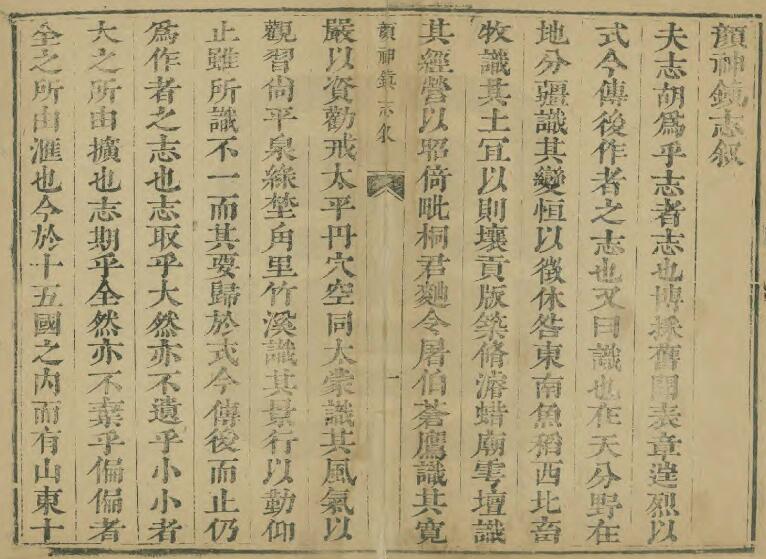 顏神鎮志叙
夫志胡爲乎志者志也博採舊聞表章逹烈以
式今傳後作者之志也又曰識也在天分野在
地分疆識其變恒以徵休咎東南魚稻西北畜
牧識其土宜以則壤貢版築脩濬蜡廟雩壇識
其經營以昭倚毗桐君麹令屠伯蒼鷹識其寬
顏神鎮志叙
一
嚴以資勸戒太平丹穴空同太蒙識其風氣以
觀習尙平泉綠埜角里竹溪識其景行以勤仰
止雖所識不一而其要歸於式今傳後而止仍
爲作者之志也志取乎大然亦不遺乎小小者
大之所由擴也志期乎全然亦不棄乎偏偏者
全之所由滙也今於十五國之內而有山東十